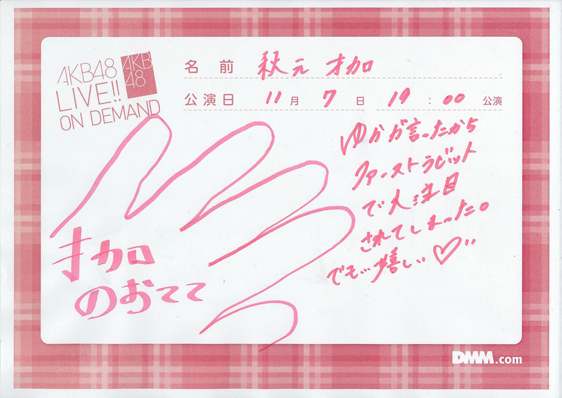 AKB48
LIVE!!
ON DEMAND
AKB
48
名前 秋元才加
公演日 11月7日 19:00 公演
ゆかが言ったから
ファーストラビット
で大注目
されてしまった。
でも…嬉しい♡
才加
のおてて
DMM.com